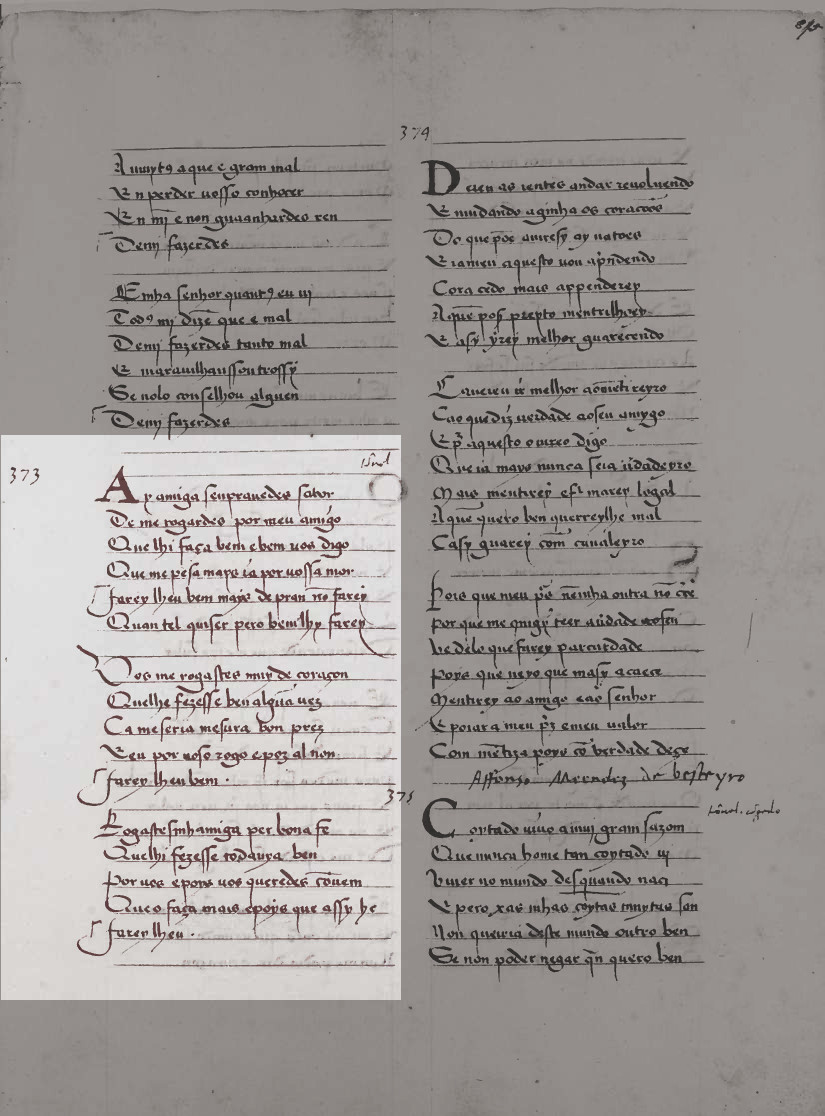 374
A muyt9 a que e gram mal
E n perder uosso conhocer
E n mī e non guaanhardes ren
Demj fazerdes
E mha senhor quant9 eu uj
Tod9 mj dizē que e mal
Demj fazerdes tanto mal
E marauilhaussoutrossy
Se uolo consselhou alguen
Demj fazerdes
373
Ay amiga senpr auedes sabor
De me rogardes por meu amigo
Que lhi faça bem e bem uos digo
Que me pesa mays ia por uossa mor
farey lheu bem mays de pran nō farey
Quan tel quiser pero bem lhy farey
Vos me rogastes muy de coraçon
Quelhe fezesse ben algūa uez
Ca me seria mesura bon prez
E eu por uoso rogo e por al non
farey lheu bem .
375
Rogastesmh amiga per bona fe
Quelhi fezesse todauya ben
Por uos e poys uos queredes cōuem
Que o faça mais e poys que assy he
farey lheu .
D eien as ientes andar reuoluendo
E mudando aginha os corações
Do que pōe antresy ay uatoes
E ia meu aquesto uou apndendo
Cora cedo mais apprenderey
A quē pos preyto mentirlhoey
E asy yrey melhor guarecendo
Ca o que diz uerdade ao seu amygo
E pr aquesto o utreo digo
Que ia mays nunca seia uerdadeyro
Mais mentirey
A que quero ben querreylhe mal
Casy guarey com caualeyro
Poys que meu
por que me
le delo que farey par caridade
poys que ueio que masy acaece
Mentirey ao amigo e ao senhor
E poiara meu prz e meu ualor
Com mētira poys cō uerdade deçe
Affonso Meendez de besteyro
Coytado uiuo a muj gram sazom
Que nunca home tan coytado uj
Viuer no mundo des quando naci
E pero xas mhas coytas muytas son
Non queiria deste mundo outro ben
Se non poder negar qn quero ben